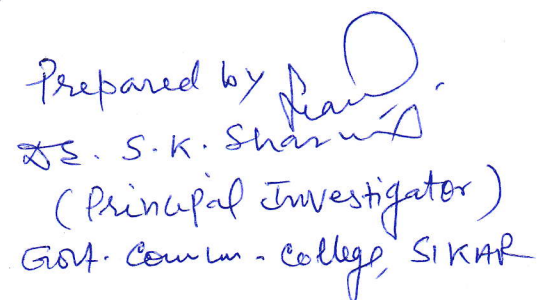 Prepared by
Dr. S.K. Sharma
(Principal Investigator)
Govt. Comm. College, SIKAR